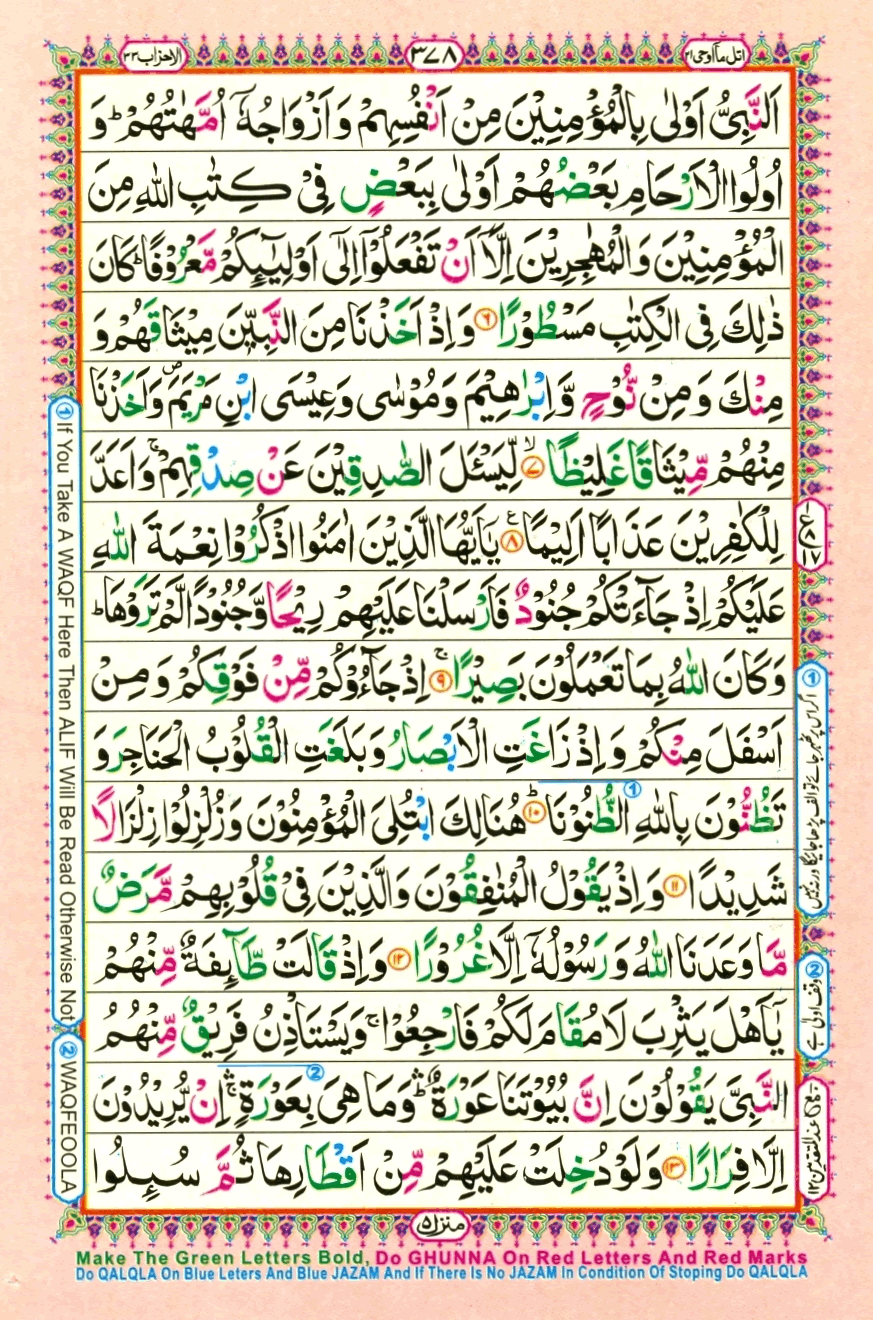 اتل ما اوحی ۲۱
۳۷۸
الاحزاب ۳۳
اَلنَّبِیُّ اَوْلٰی بِالْمُؤْمِنِیْنَ مِنْ اَنْفُسِهِمْ وَ اَزْوَاجُهٗۤ اُمَّهٰتُهُمْ ؕ وَ
اُولُوا الْاَرْحَامِ بَعْضُهُمْ اَوْلٰی بِبَعْضٍ فِیْ كِتٰبِ اللّٰهِ مِنَ
الْمُؤْمِنِیْنَ وَالْمُهٰجِرِیْنَ اِلَّاۤ اَنْ تَفْعَلُوْۤا اِلٰۤی اَوْلِیٰٓىِٕكُمْ مَّعْرُوْفًا ؕ كَانَ
ذٰلِكَ فِی الْكِتٰبِ مَسْطُوْرًا ۶ وَ اِذْ اَخَذْنَا مِنَ النَّبِیّٖنَ مِیْثَاقَهُمْ وَ
مِنْكَ وَ مِنْ نُّوْحٍ وَّ اِبْرٰهِیْمَ وَ مُوْسٰی وَ عِیْسَی ابْنِ مَرْیَمَ ۪ وَ اَخَذْنَا
مِنْهُمْ مِّیْثَاقًا غَلِیْظًا ۙ ۷ لِّیَسْـَٔلَ الصّٰدِقِیْنَ عَنْ صِدْقِهِمْ ۚ وَ اَعَدَّ
لِلْكٰفِرِیْنَ عَذَابًا اَلِیْمًا ۸ ع یٰۤاَیُّهَا الَّذِیْنَ اٰمَنُوا اذْكُرُوْا نِعْمَةَ اللّٰهِ
عَلَیْكُمْ اِذْ جَآءَتْكُمْ جُنُوْدٌ فَاَرْسَلْنَا عَلَیْهِمْ رِیْحًا وَّ جُنُوْدًا لَّمْ تَرَوْهَا ؕ
وَ كَانَ اللّٰهُ بِمَا تَعْمَلُوْنَ بَصِیْرًا ۚ ۹ اِذْ جَآءُوْكُمْ مِّنْ فَوْقِكُمْ وَ مِنْ
اَسْفَلَ مِنْكُمْ وَ اِذْ زَاغَتِ الْاَبْصَارُ وَ بَلَغَتِ الْقُلُوْبُ الْحَنَاجِرَ وَ
تَظُنُّوْنَ بِاللّٰهِ الظُّنُوْنَا ① ؕ ۱۰ هُنَالِكَ ابْتُلِیَ الْمُؤْمِنُوْنَ وَ زُلْزِلُوْا زِلْزَالًا
شَدِیْدًا ۱۱ وَ اِذْ یَقُوْلُ الْمُنٰفِقُوْنَ وَالَّذِیْنَ فِیْ قُلُوْبِهِمْ مَّرَضٌ
مَّا وَعَدَنَا اللّٰهُ وَ رَسُوْلُهٗۤ اِلَّا غُرُوْرًا ۱۲ وَ اِذْ قَالَتْ طَّآىِٕفَةٌ مِّنْهُمْ
یٰۤاَهْلَ یَثْرِبَ لَا مُقَامَ لَكُمْ فَارْجِعُوْا ۚ وَ یَسْتَاْذِنُ فَرِیْقٌ مِّنْهُمُ
النَّبِیَّ یَقُوْلُوْنَ اِنَّ بُیُوْتَنَا عَوْرَةٌ ؕ وَمَا هِیَ بِعَوْرَةٍ ② ۚ اِنْ یُّرِیْدُوْنَ
اِلَّا فِرَارًا ۱۳ وَ لَوْ دُخِلَتْ عَلَیْهِمْ مِّنْ اَقْطَارِهَا ثُمَّ سُىِٕلُوا
① If You Take A WAQF Here Then ALIF Will Be Read Otherwise Not
② WAQFEOOLA
② وقف اولٰی ہے
منزل ۵
Make The Green Letters Bold, Do GHUNNA On Red Letters And Red Marks
Do QALQLA On Blue Leters And Blue JAZAM And If There Is No JAZAM In Condition Of Stoping Do QALQLA